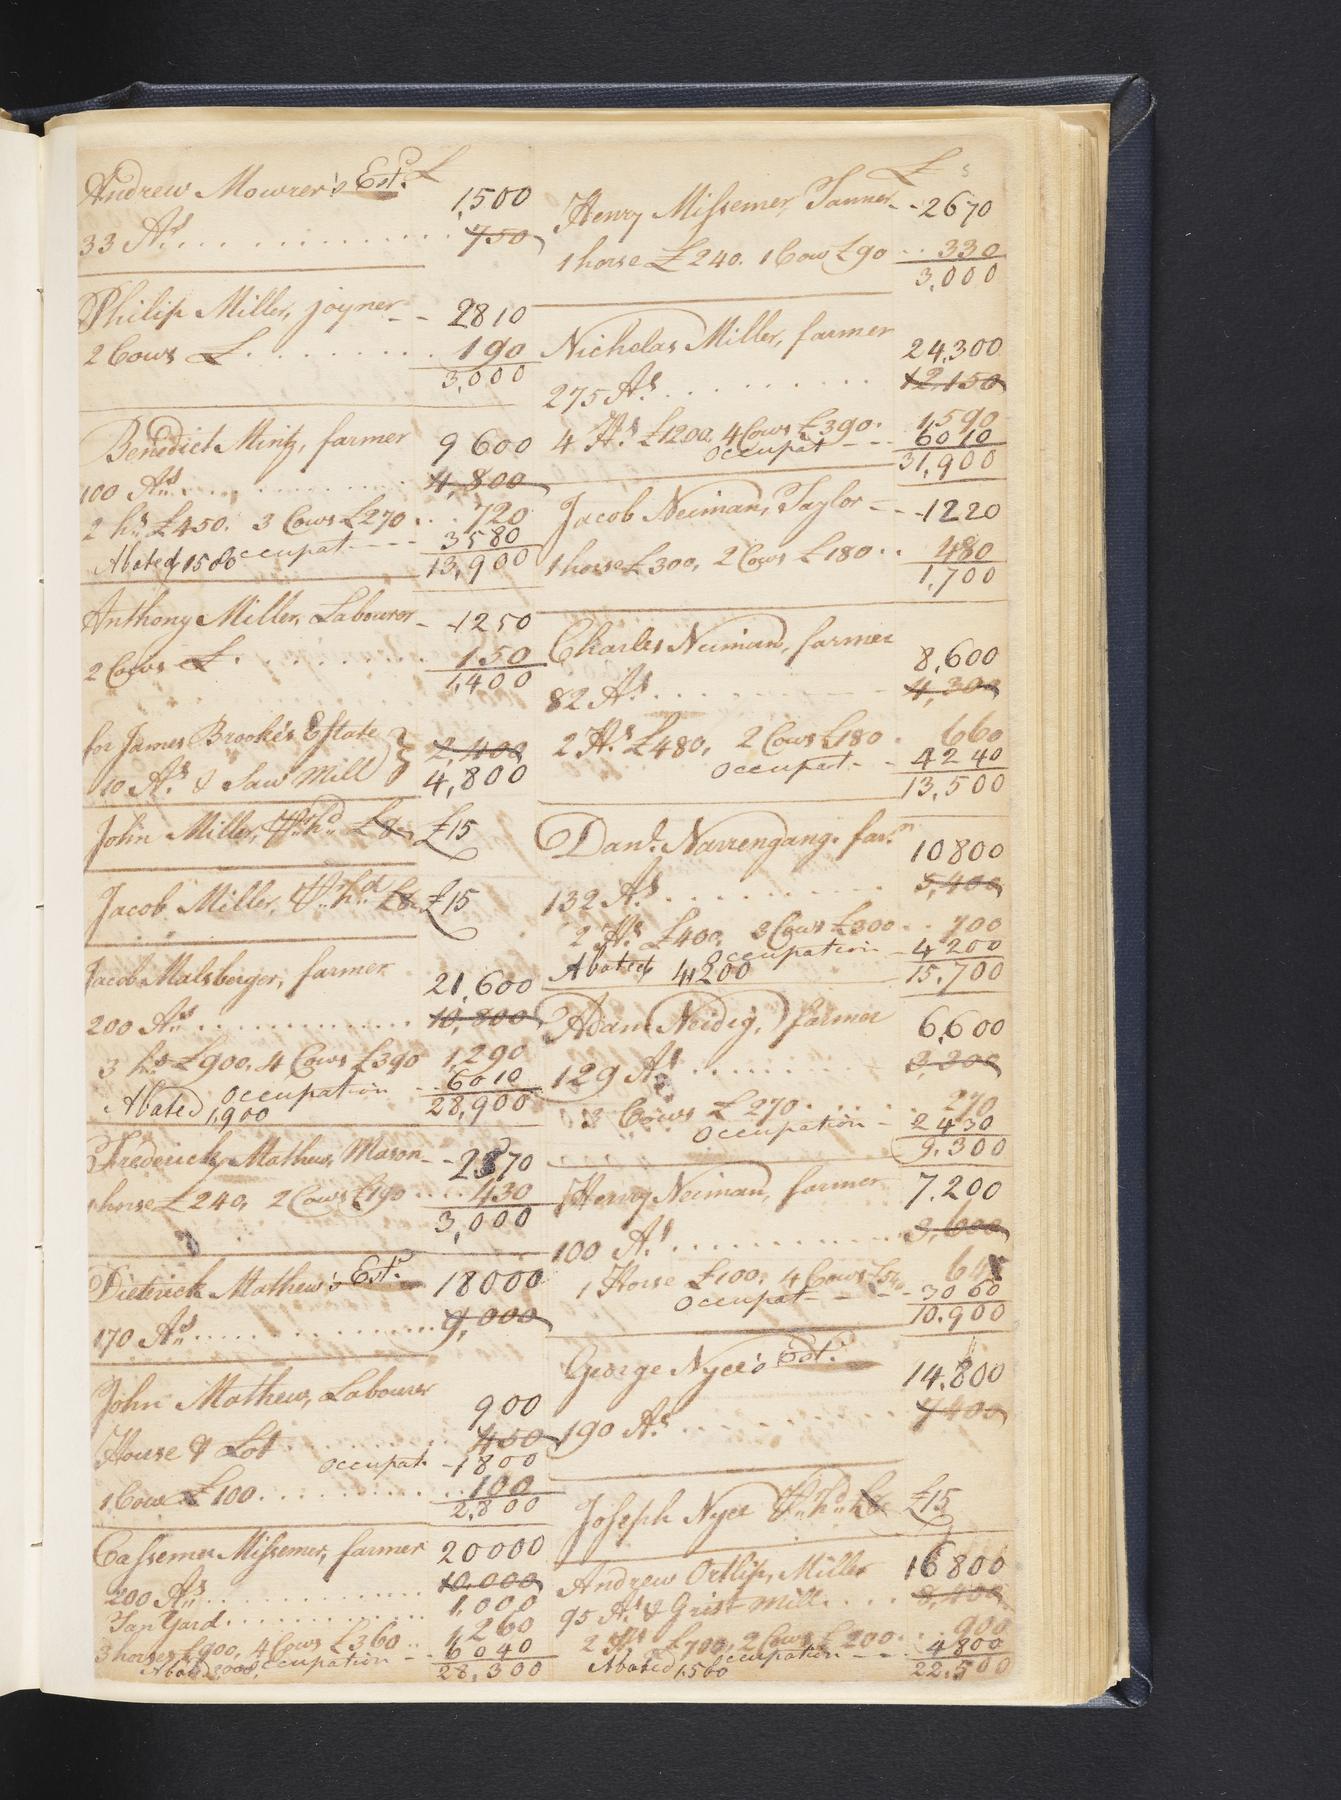 Andrew Mowrer's Est. £
1,500
33 As. 750
Philip Miller, joyner 2810
2 Cows £ 190
3,000
Benedict Mintz, farmer 9600
100 As. 4,800
2 hs. £450. 3 Cows £270 720
occupat 3580
Abated 1500 13,900
Anthony Miller, Labourer 1250
2 Cows £ 150
1,400
for James Brooke's Estate 2,400
10 As. & Saw Mill 4,800
John Miller, £8 £15
Jacob Miller, £8 £15
Jacob Malsberger, farmer 21,600
200 As. 10,800
3 hs. £900, 4 Cows £390 1,290
occupation 6010
Abated 1,900 28,900
Frederick Mathew, Mason 2570
1 horse £240, 2 Cows £190 430
3,000
Dieterick Mathew's Est. 18000
170 As. 9,000
John Mathew, Labourer 900
House & Lot 450
occupat 1800
1 Cow £100 100
2,800
Cassemer Missemer, farmer 20000
200 As. 10,000
Tan Yard 1,000
3 horses £900, 4 Cows £360 1,260
occupation 6040
Abated 3000 28,300
£ s
Henry Missemer, Tanner 2670
1 horse £240. 1 Cow £90 330
3,000
Nicholas Miller, farmer 24,300
275 As. 12,150
4 Hs. £1200, 4 Cows £390 1,590
occupat 6010
31,900
Jacob Neiman, Taylor 1220
1 horse £300, 2 Cows £180 480
1,700
Charles Neiman, farmer 8,600
82 As. 4,300
2 Hs. £480, 2 Cows £180 660
occupat 4240
13,500
Danl. Narrengang. farr. 10800
132 As. 5,400
2 Hs. £400, 3 Cows £300 700
occupation 4200
Abated 4,200 15,700
Adam Neidig, farmer 6,600
129 As. 3,300
3 Cows £270 270
occupation 2430
9,300
Henry Neiman, farmer 7,200
100 As. 3,600
1 Horse £100, 4 Cows £54 64
occupat 3060
10,900
George Nyce's Est. 14,800
190 As. 7400
Joseph Nyce £15
Andrew Ortlip, Miller 16800
95 As. & Grist Mill 8,400
2 Hs. £700, 2 Cows £200 900
occupation 4800
Abated 1,560 22,500